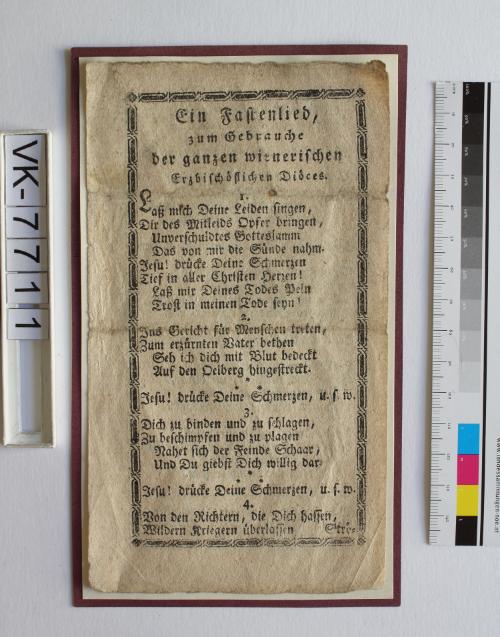 Ein Fastenlied,
zum Gebrauche
der ganzen wienerischen
Erzbischöflichen Diöces.
1.
Laß mich Deine Leiden singen,
Dir des Mitleids Opfer bringen,
Unverschuldtes Gotteslamm
Das von mir die Sünde nahm.
Jesu! drücke Deine Schmerzen
Tief in aller Christen Herzen!
Laß mir Deines Todes Pein
Trost in meinen Tode seyn!
2.
Ins Gericht für Menschen treten,
Zum erzürnten Vater bethen
Seh ich dich mit Blut bedeckt
Auf den Oelberg hingestreckt.
* * *
Jesu! drücke Deine Schmerzen, u. s. w.
3.
Dich zu binden und zu schlagen,
Zu beschimpfen und zu plagen
Nahet sich der Feinde Schaar,
Und Du giebst Dich willig dar.
* * *
Jesu! drücke Deine Schmerzen, u. s. w.
4.
Von den Richtern, die Dich hassen,
Wildern Kriegern überlassen Strö-
VK-7711
www.landessammlungen-noe.at